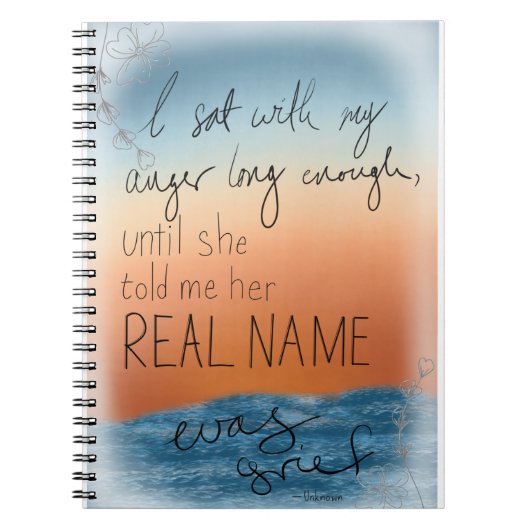 I sat with my
anger long enough,
until she
told me her
REAL NAME
was
grief
—Unknown